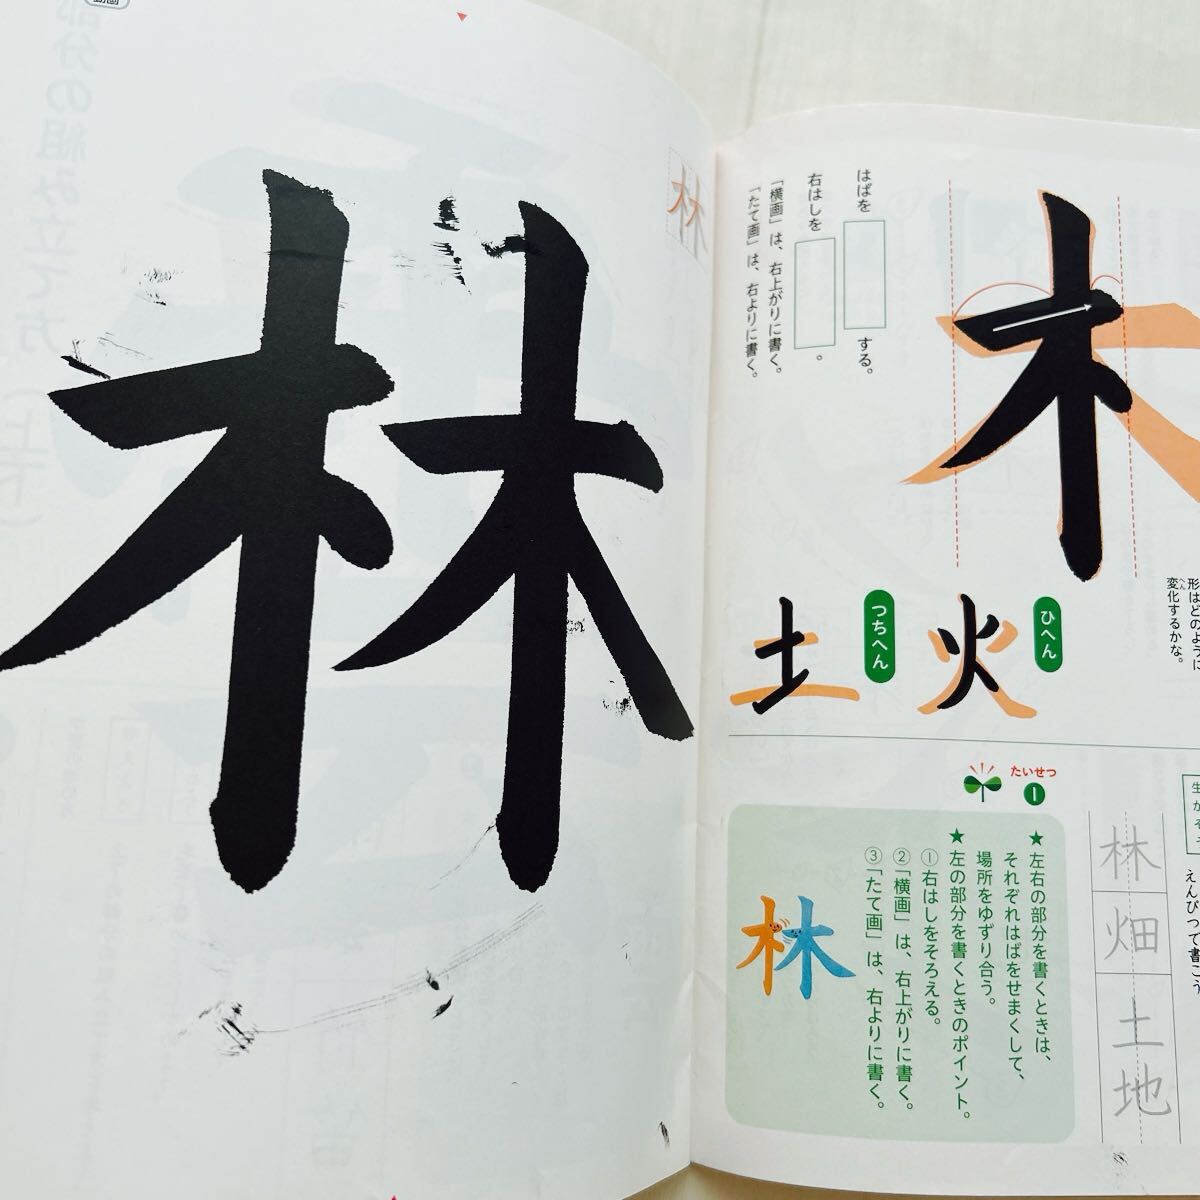 林
動画
部分の組み立て方（上下）
林
木
はばを　　　する。
右はしを　　　。
「横画」は、右上がりに書く。
「たて画」は、右よりに書く。
形はどのように
変化するかな。
へん
ひへん
火
つちへん
土
たいせつ
1
★左右の部分を書くときは、
それぞれはばをせまくして、
場所をゆずり合う。
★左の部分を書くときのポイント。
①右はしをそろえる。
②「横画」は、右上がりに書く。
③「たて画」は、右よりに書く。
林
えんぴつで書こう
林
畑
土
地